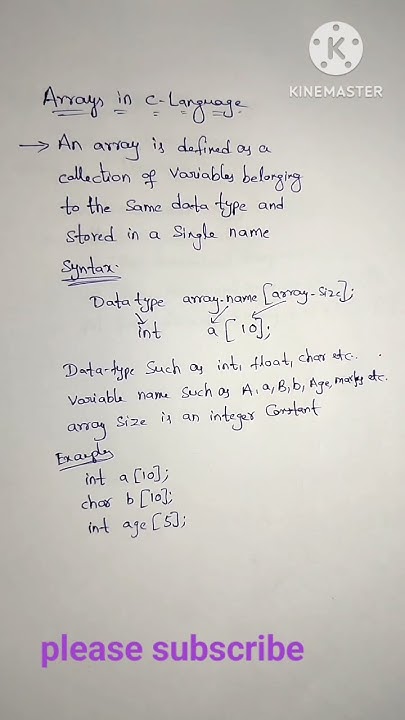 KINEMASTER
Arrays in C-Language
→ An array is defined as a
collection of Variables belonging
to the same data type and
stored in a single name
Syntax:
Data type array-name [array-size];
int a[10];
Data-type such as int, float, char etc..
Variable name such as A, a, B, b, Age, marks etc.
array size is an integer Constant
Examples
int a[10];
char b[10];
int age[5];
please subscribe